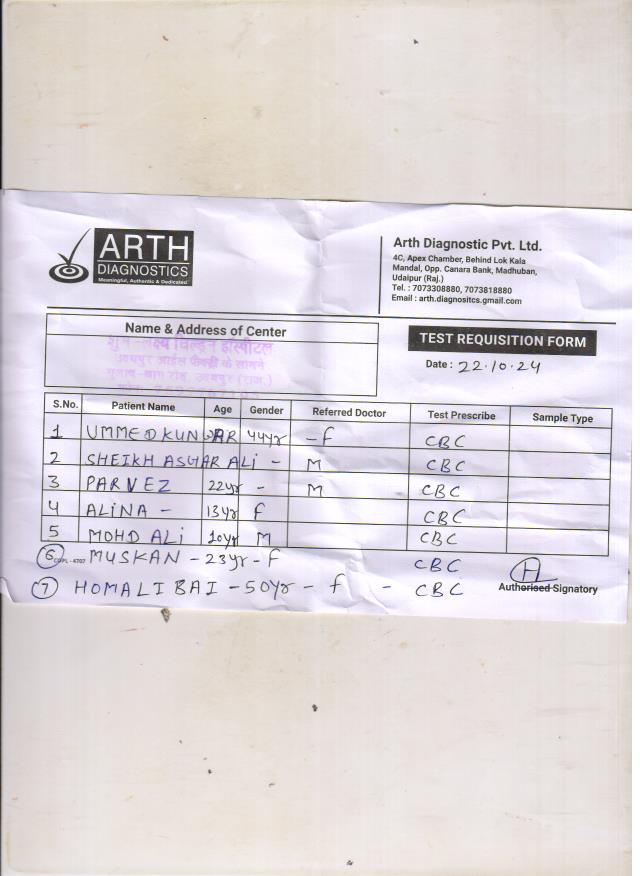 ARTH
DIAGNOSTICS
Meaningful, Authentic & Dedicated
Arth Diagnostic Pvt. Ltd.
4C, Apex Chamber, Behind Lok Kala
Mandal, Opp. Canara Bank, Madhuban,
Udaipur (Raj.)
Tel. : 7073308880, 7073818880
Email : arth.diagnositcs.gmail.com
Name & Address of Center
शुभ लक्ष्य चिल्ड्रन हॉस्पीटल
उदयपुर आईल फैक्ट्री के सामने
गुलाब बाग रोड, उदयपुर (राज.)
TEST REQUISITION FORM
Date : 22.10.24
S.No. Patient Name Age Gender Referred Doctor Test Prescribe Sample Type
1 UMMED KUNWAR 44yr - F CBC
2 SHEIKH ASGAR ALi - M CBC
3 PARVEZ 22yr - M CBC
4 ALiNA - 13yr F CBC
5 MOHD ALi 20yr M CBC
6 MUSKAN - 23yr - F CBC
7 HOMALI BAI - 50yr - F - CBC
Authorised Signatory